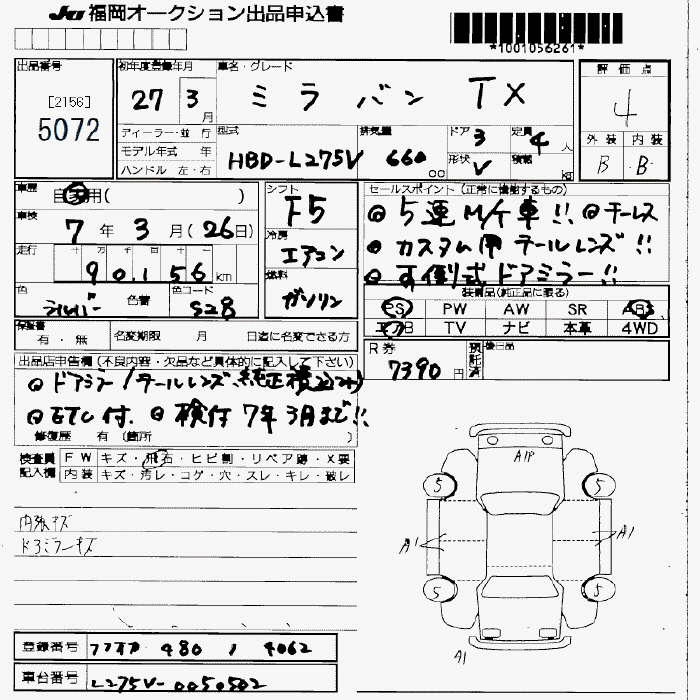 JU 福岡オークション出品申込書
*1001056261*
出品番号
[2156]
5072
初年度登録年月
27 3 月
車名・グレード
ミラ バン TX
評価点
4
外装 内装
B B
ディーラー・並行
モデル年式 年
ハンドル 左・右
型式
HBD-L275V
排気量
660 cc
ドア 3
形状 V
定員 4 人
積載 kg
車歴
自家用( )
車検
7 年 3 月(26日)
走行
90,156 km
色
シルバー
色替
色コード
S28
シフト
F5
冷房
エアコン
燃料
ガソリン
セールスポイント(正常に機能するもの)
◎5速M/T車!! ◎テーレス
◎カスタム用テールレンズ!!
◎可倒式ドアミラー!!
装備品(純正品に限る)
PS PW AW SR ABS
エアB TV ナビ 本革 4WD
保証書
有・無
名変期限 月 日迄に名変できる方
R券
7390円
預託済
後日品
出品店申告欄(不良内容・欠品など具体的に記入して下さい)
◎ドアミラー/テールレンズ、純正積込み
◎ETC付. ◎検付7年3月まで!!
修復歴 有 (箇所 )
検査員記入欄
FW キズ・飛石・ヒビ割・リペア跡・X要
内装 キズ・汚レ・コゲ・穴・スレ・キレ・破レ
内張キズ
ドアミラーキズ
A1P
5 5
A1 A1
5 5
A1
登録番号
480 4062
車台番号
L275V-0050502